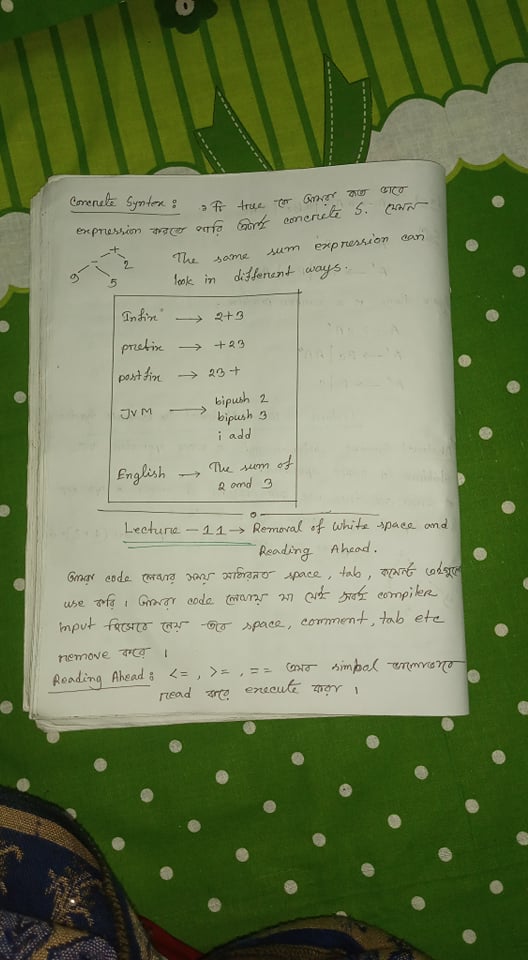 Concrete Syntax: একটি true কে আমরা কত ভাবে
expression করতে পারি তাই concrete S. যেমন
+
- 2
9 5
The same sum expression can
look in different ways.
Infix → 2+3
prefix → +23
postfix → 23+
JVM → bipush 2
bipush 3
i add
English → The sum of
2 and 3
Lecture - 11 → Removal of white space and
Reading Ahead.
আমরা code লেখার সময় space, tab, কমেন্ট
use করি। আমরা code লেখায় যা compiler
input হিসেবে নেয় তবে space, comment, tab etc
remove করে।
Reading Ahead: <=, >=, == এসব simbal
read করে execute করা।